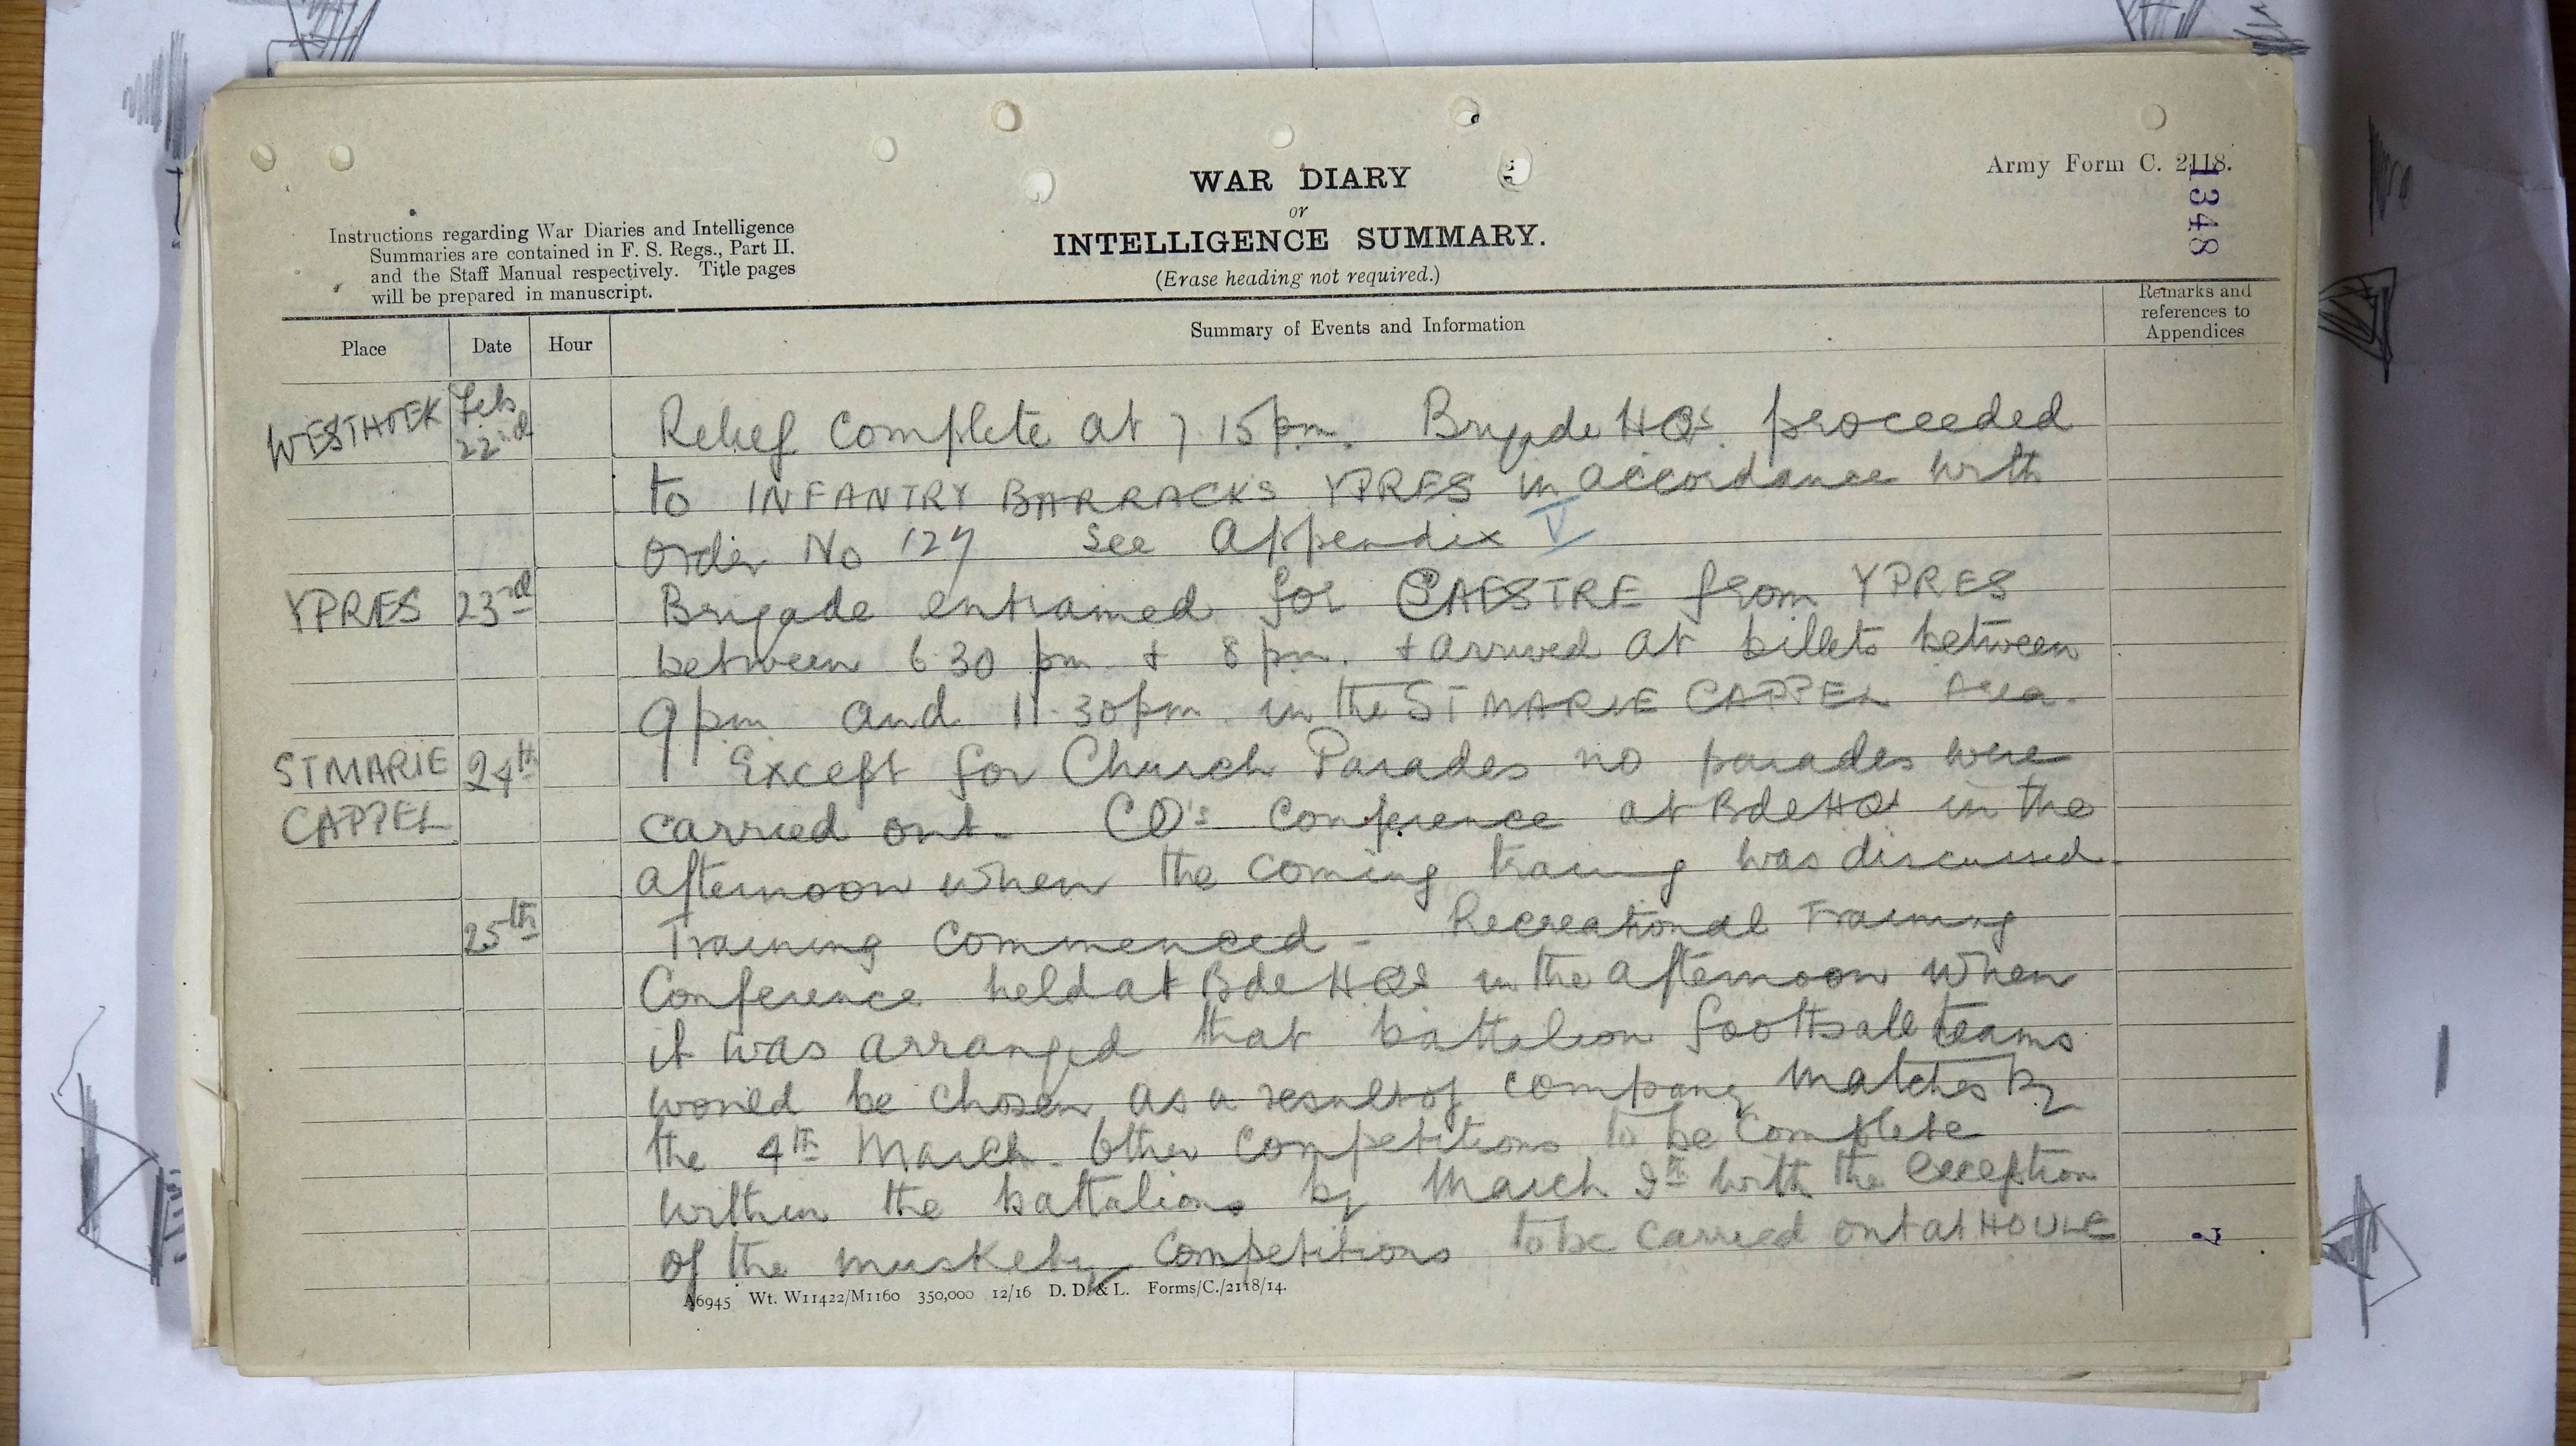 Army Form C. 2118.
1348
WAR DIARY
or
INTELLIGENCE SUMMARY.
(Erase heading not required.)
Instructions regarding War Diaries and Intelligence
Summaries are contained in F. S. Regs., Part II.
and the Staff Manual respectively. Title pages
will be prepared in manuscript.
Place Date Hour Summary of Events and Information Remarks and references to Appendices
WESTHOEK Feb 22nd Relief complete at 7.15pm. Brigade HQs. proceeded
to INFANTRY BARRACKS YPRES in accordance with
order No 127 see Appendix V
YPRES 23rd Brigade entrained for CAESTRE from YPRES
between 6.30 pm. + 8 pm. + arrived at billets between
9pm and 11.30pm. in the ST MARIE CAPPEL Area.
ST MARIE 24th Except for Church Parades no parades were
CAPPEL carried out. CO's Conference at Bde HQs in the
afternoon when the coming traing was discussed.
25th Training commenced - Recreational Training
Conference held at Bde HQs in the afternoon when
it was arranged that battalion football teams
would be chosen as a result of company matches by
the 4th March. Other competitions to be complete
within the battalions by March 9th with the exception
of the musketry competitions to be carried out at HOULE
7
A6945 Wt. W11422/M1160 350,000 12/16 D. D. & L. Forms/C./2118/14.